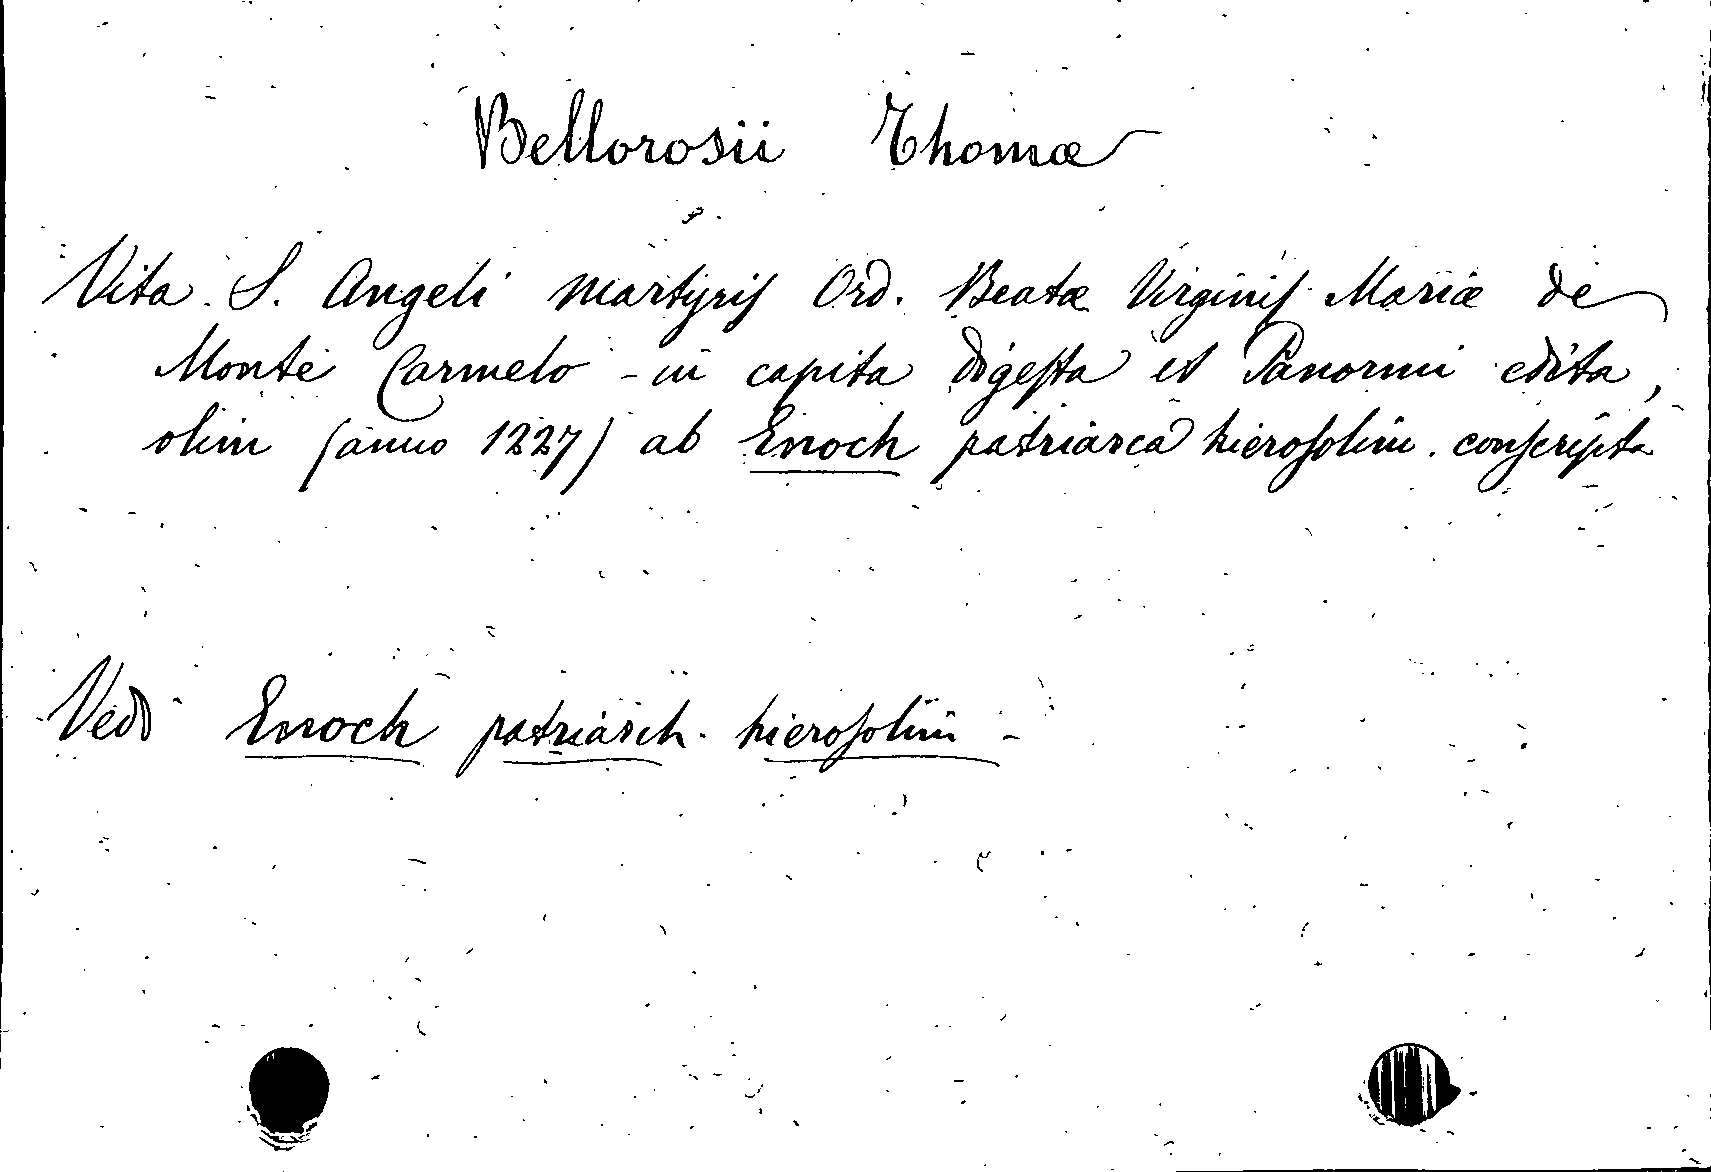 Bellorosii Thomæ
Vita S. Angeli Martyris Ord. Beatæ Virginis Mariæ de
Monte Carmelo - in capita digesta et Panormi edita,
olim (anno 1227) ab Enoch patriarca hierosolim. conscripta
Vedi Enoch patriarch. hierosolim -